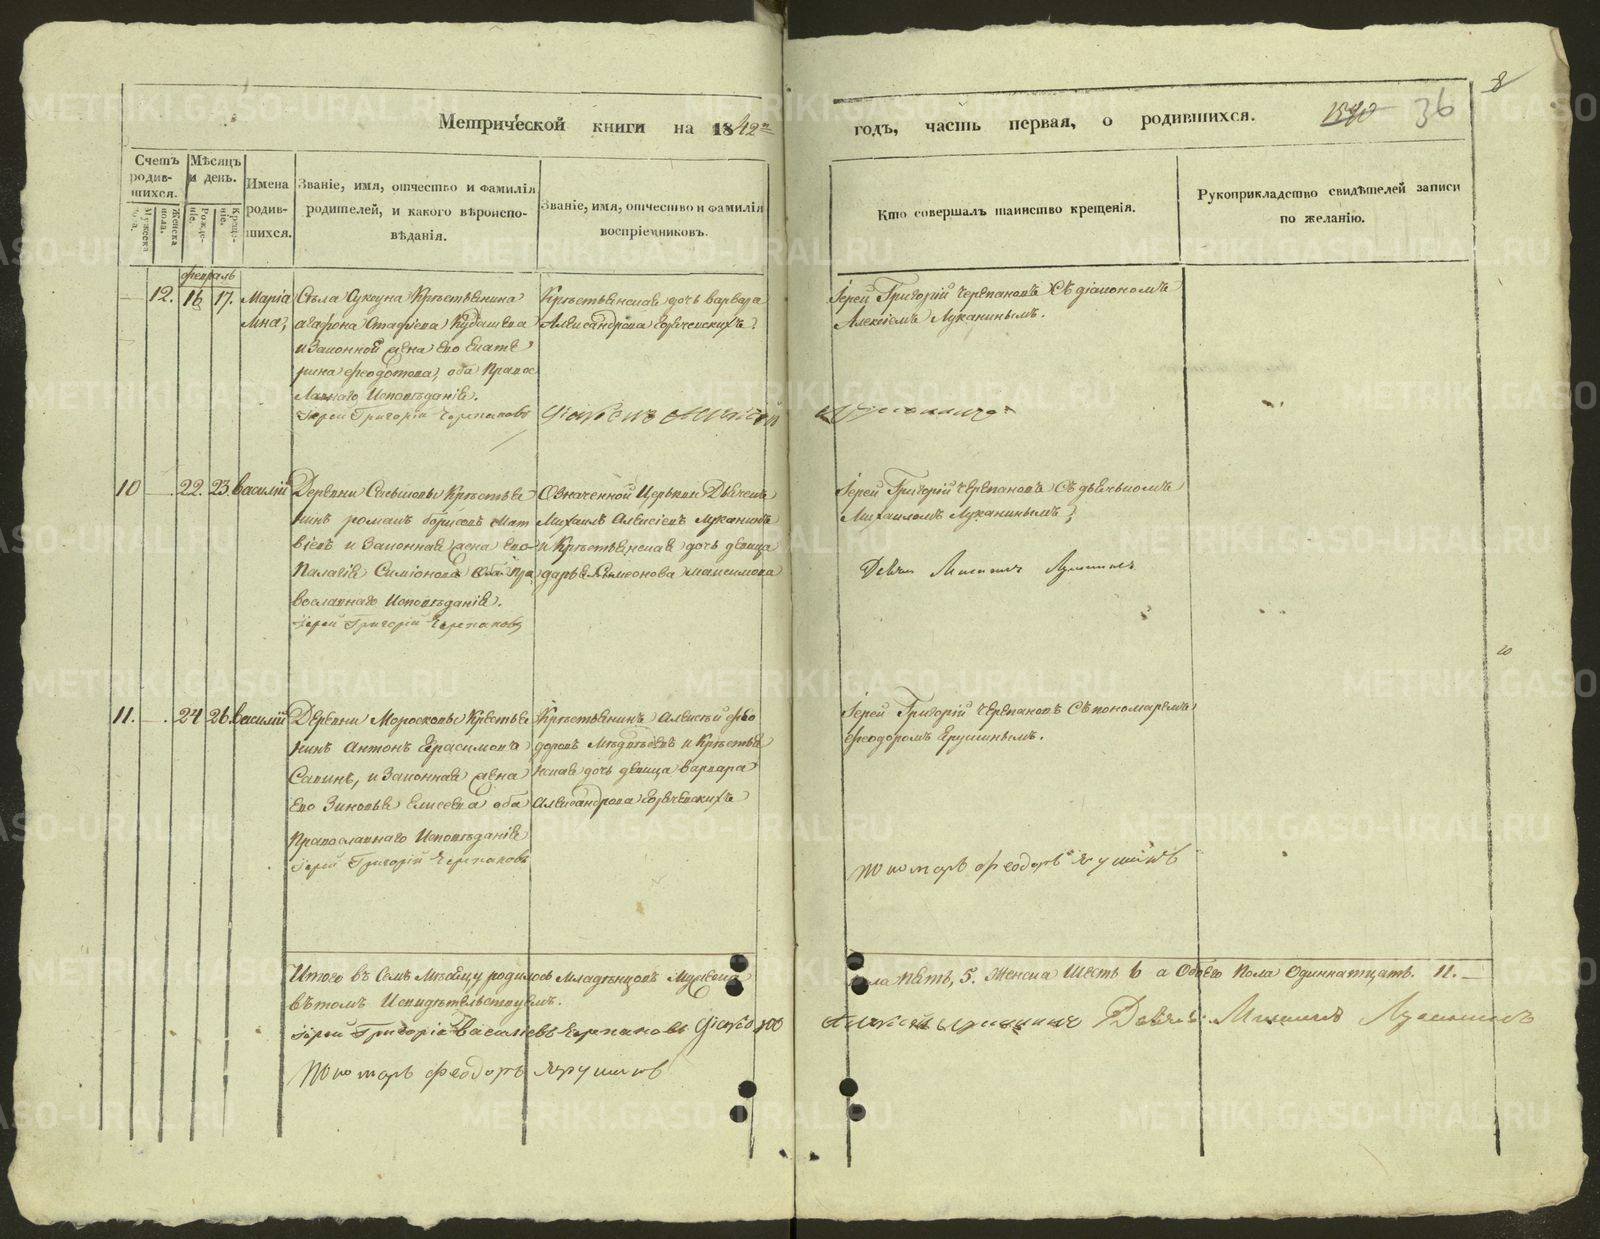 Метрической книги на 1842й
годъ, часть первая, о родившихся.
1540 36
8
Счетъ родив-шихся.
Мужеска пола.
Женска пола.
Мѣсяцъ и день.
Рожде-нія.
Креще-нія.
Имена родив-шихся.
Званіе, имя, отчество и фамилія
родителей, и какого вѣроиспо-
вѣданія.
Званіе, имя, отчество и фамилія
воспріемниковъ.
Кто совершалъ таинство крещенія.
Рукоприкладство свидѣтелей записи
по желанію.
февраль
12. 16 17. Маріа
мна,
Села Суксуна Крестьянина
Агафона Кудашева
и Законной жена его Екате
рина Феодотова, оба Правос
лавнаго Исповѣданіе.
Іерей Григорій Черепановъ
Крестьянская дочь Варвара
Александрова
Діаконъ Алексѣй
Іерей Григорій Черепановъ Съ діакономъ
Алексіемъ Луканинымъ.
10 22. 23. Василій
Деревни Крестья
нинъ Романъ Борисовъ Мат
вѣевъ и Законная жена его
Палагія Симіонова оба Пра
вославнаго Исповѣданіе.
Іерей Григорій Черепановъ
Означенной Церькви Дьячекъ
Михаилъ Алексіевъ Луканинъ
и Крестьянская дочь девица
Дарья Симеонова Максимова
Іерей Григорій Черепановъ Съ дьячькомъ
Михаиломъ Луканинымъ,
Дьячекъ Михаилъ Луканинъ
20
11. 24 26. Василій
Деревни Морозковы Крестья
нинъ Антонъ Герасимовъ
Савинъ, и Законная жена
его Зиновья Елисеева оба
Православнаго Исповѣданіе
Іерей Григорій Черепановъ
Крестьянинъ Алексѣй Фео
доровъ Медвѣдевъ и Крестья
нская дочь девица Варвара
Александрова
Іерей Григорій Черепановъ Съ пономаремъ
Феодоромъ Ярушинымъ.
Пономарь Феодоръ Ярушинъ
Итого въ Семъ Мѣсяцу родилось Младѣнцовъ Мужеска
пола пять, 5. Женска Шесть 6 а Обоего Пола Одиннатцать. 11.
вѣтомъ И свидѣтельствуемъ.
Іерей Григорій Васильевъ Черепановъ Діаконъ
Алексѣй Луканинъ Дьячекъ Михаилъ Луканинъ
Пономарь Феодоръ Ярушинъ
METRIKI.GASO-URAL.RU